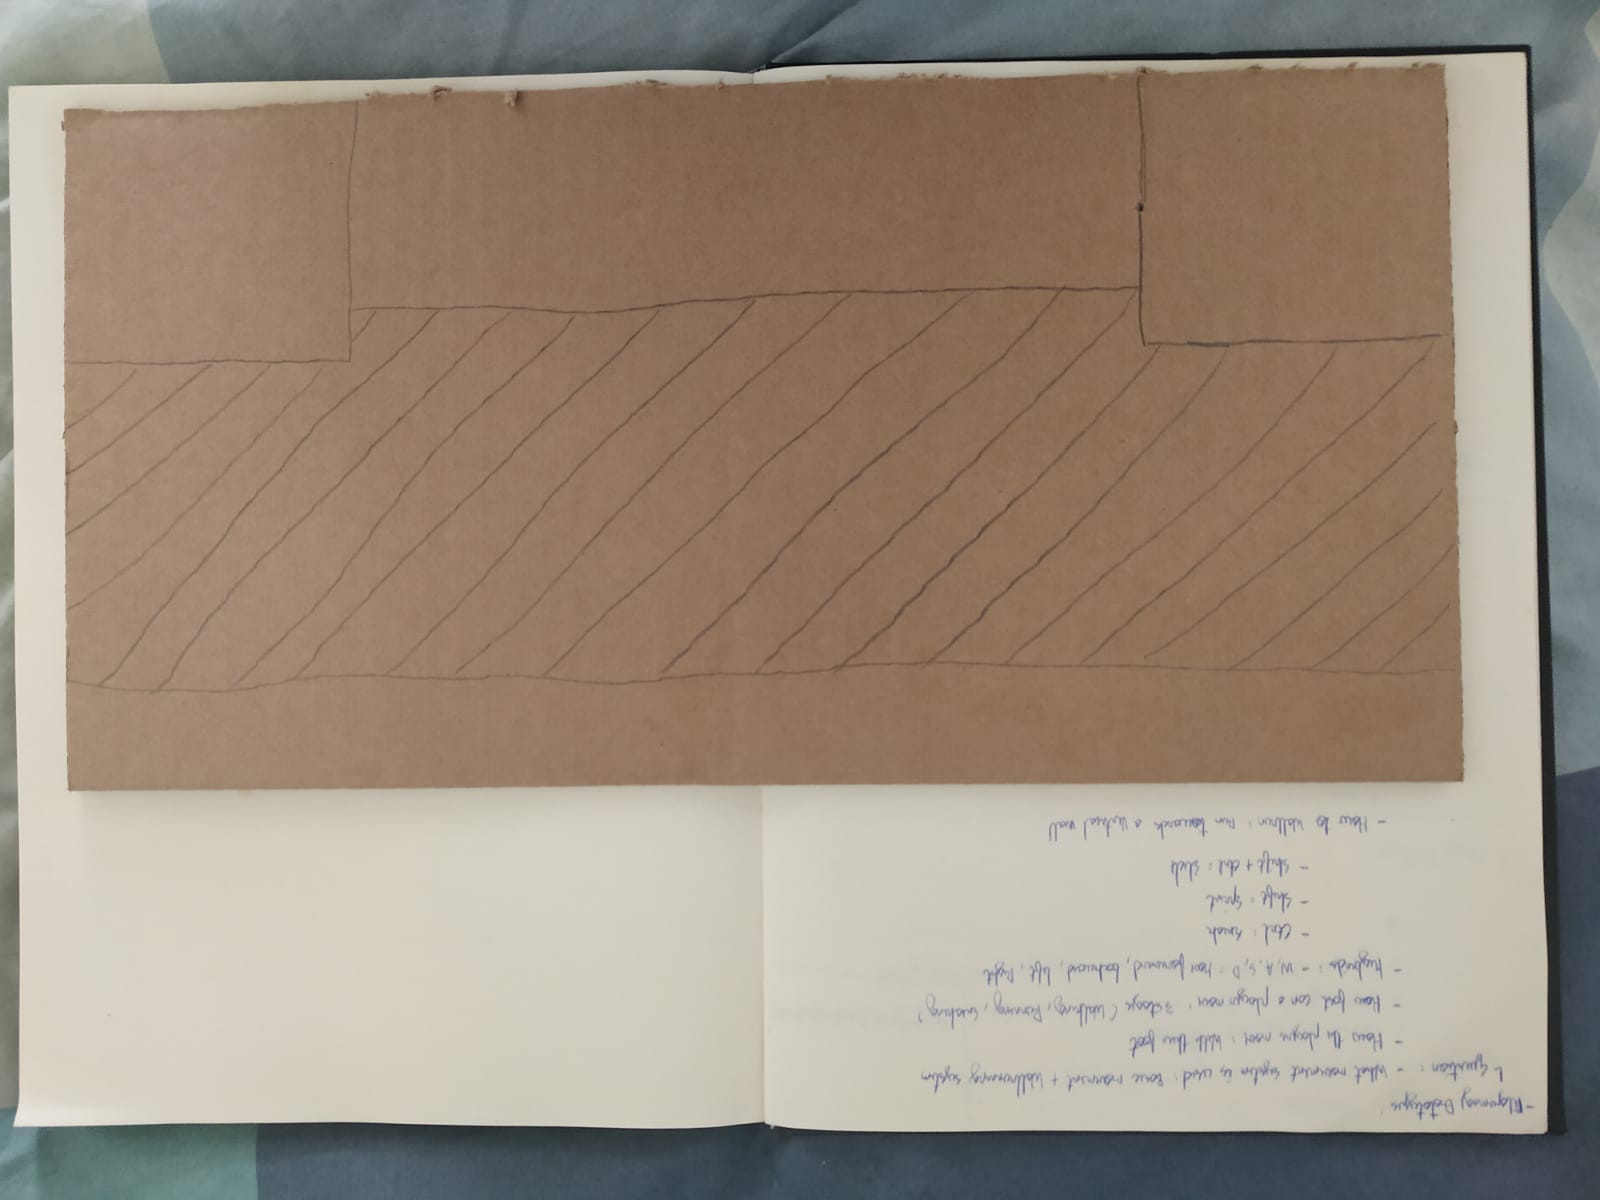 - Prototype:
└ Question: - What movement system is used: Basic movement + Wallrunning system
- How the player move: With their foot
- How fast can a player move: 3 stages (Walking, Running, Sneaking)
- Keybinds: - W, A, S, D: Move forward, backward, left, Right
- Ctrl: Sneak
- Shift: Sprint
- Shift + Ctrl: Slide
- How to Wallrun: Run towards a Vertical wall